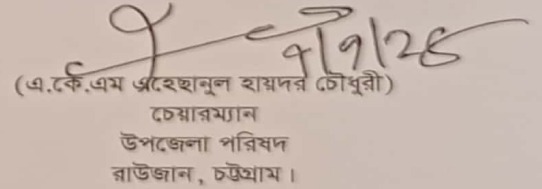 (এ.কে.এম এহেছানুল হায়দর চৌধুরী)
চেয়ারম্যান
উপজেলা পরিষদ
রাউজান, চট্টগ্রাম।